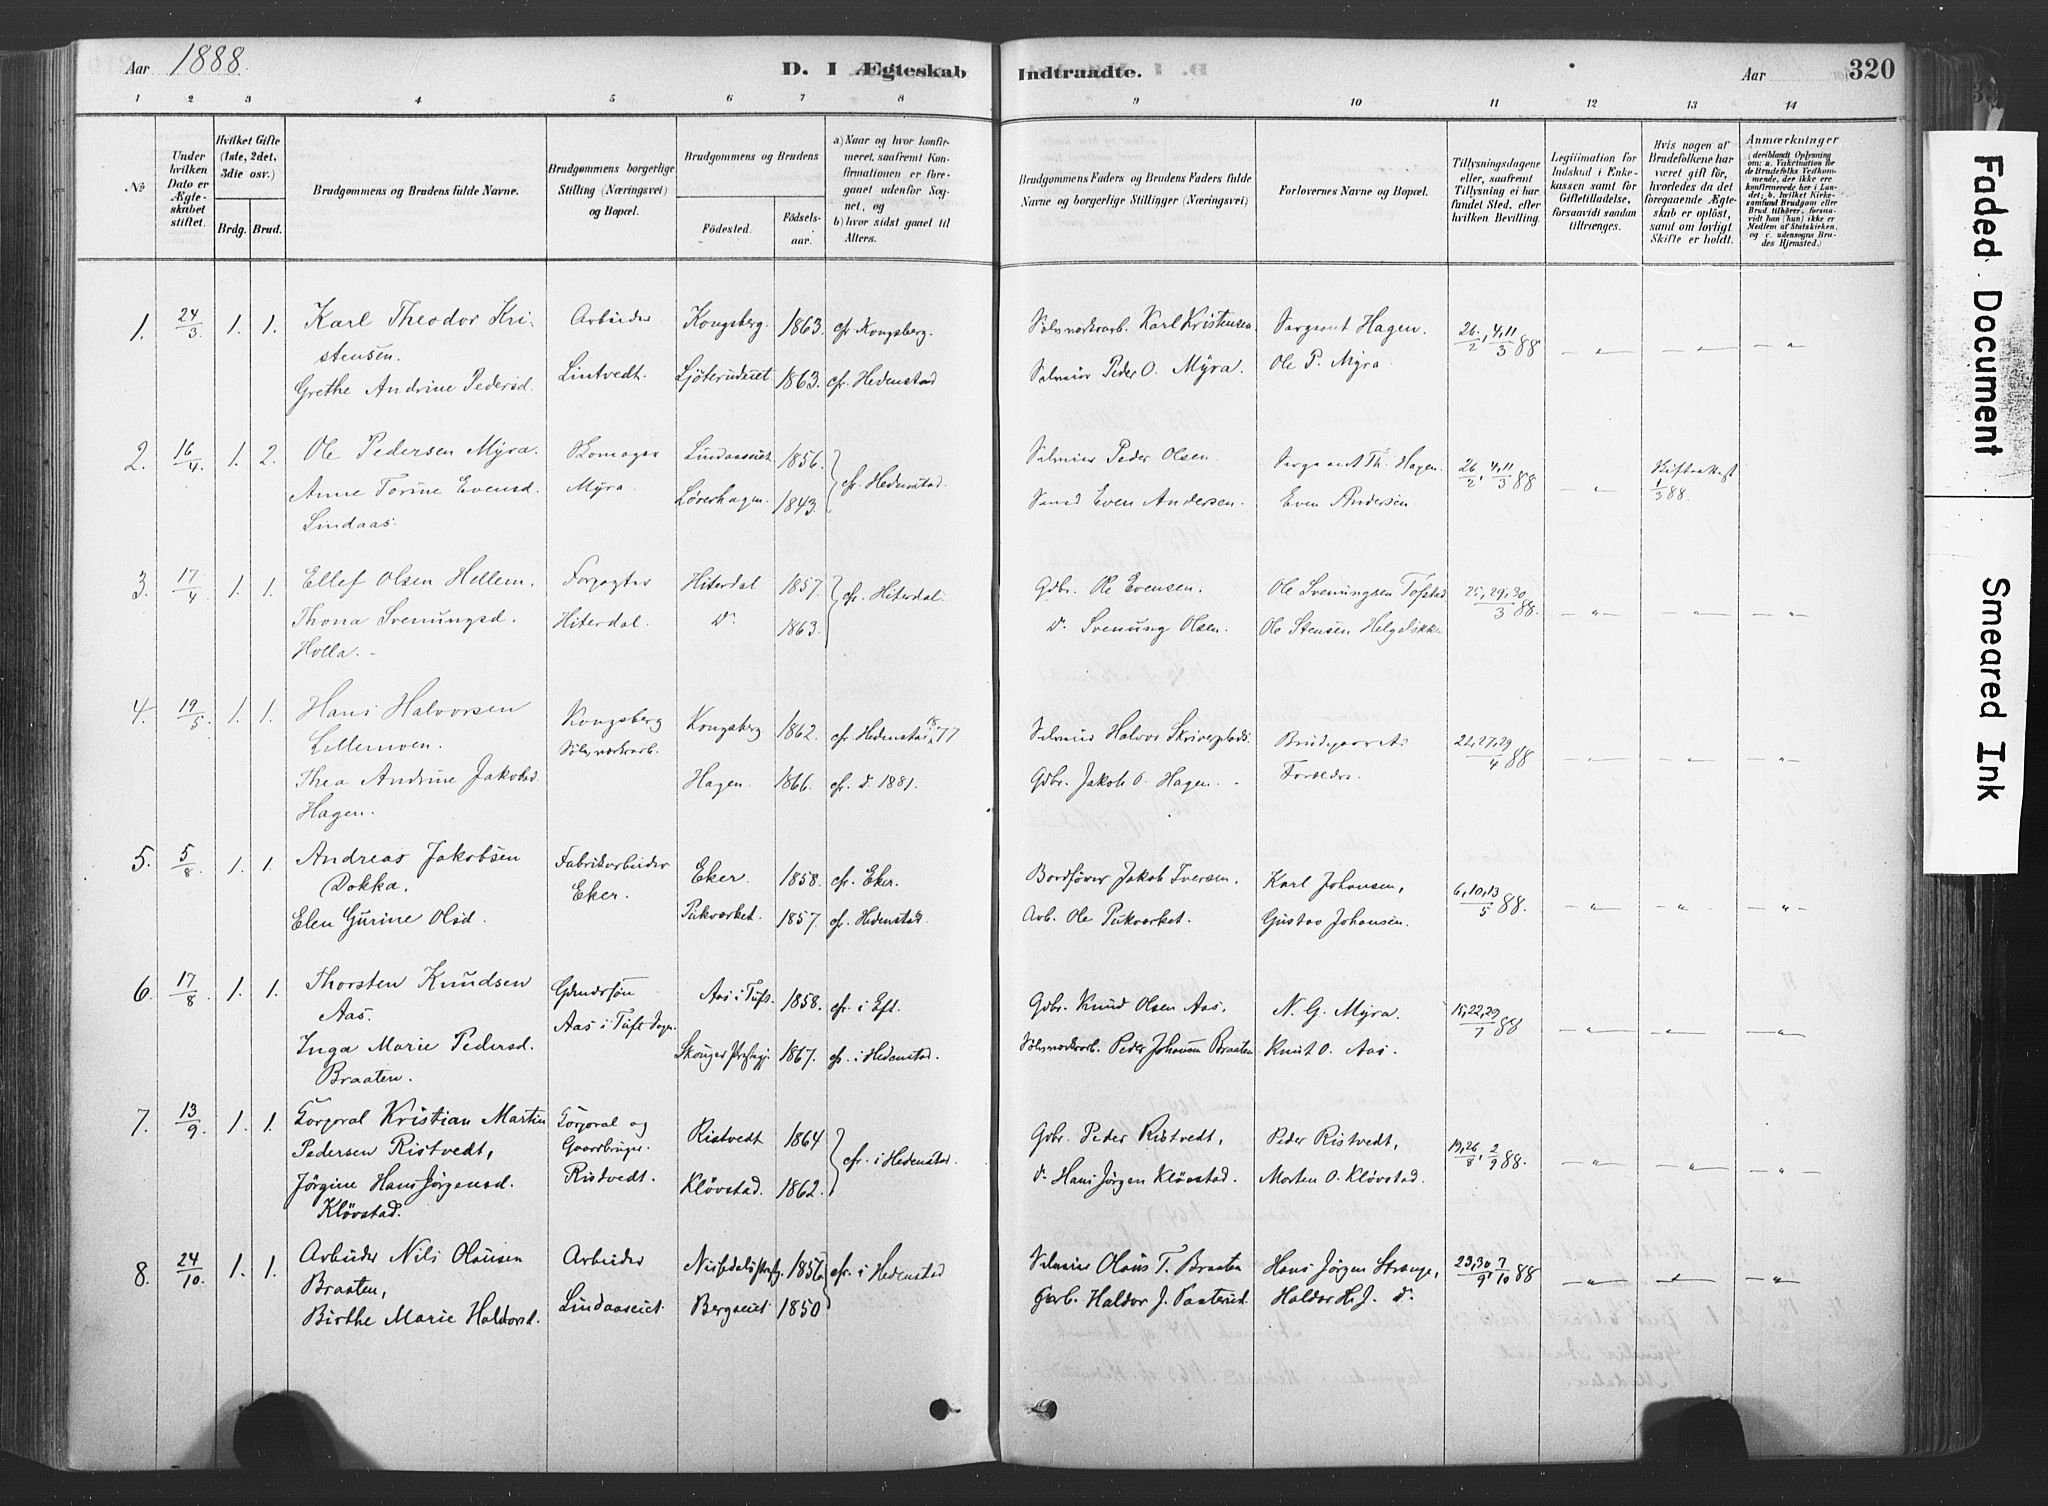 Aar 1888.
D. I Ægteskab Indtraadte.
Aar 320
1 2 3 4 5 6 7 8 9 10 11 12 13 14
No
Under hvilken Dato er Ægteskabet stiftet.
Hvilket Gifte (1ste, 2det, 3die osv.)
Brdg. Brud.
Brudgommens og Brudens fulde Navne.
Brudgommens borgerlige Stilling (Næringsvei) og Bopæl.
Brudgommens og Brudens
Fødested. Fødselsaar.
a) Naar og hvor konfirmeret, saafremt Konfirmationen er foregaaet udenfor Sognet, og
b) hvor sidst gaaet til Alters.
Brudgommens Faders og Brudens Faders fulde Navne og borgerlige Stillinger (Næringsvei)
Forlovernes Navne og Bopæl.
Tillysningsdagene eller, saafremt Tillysning ei har fundet Sted, efter hvilken Bevilling.
Legitimation for Indskud i Enkekassen samt for Giftetilladelse, forsaavidt saadan tiltrænges.
Hvis nogen af Brudefolkene har været gift før, hvorledes da det foregaaende Ægteskab er opløst, samt om lovligt Skifte er holdt.
Anmærkninger
(deriblandt Oplysning om: a. Vakcination for de Brudefolks Vedkommende, der ikke ere konfirmerede her i Landet, b. hvilket Kirkesamfund Brudgom eller Brud tilhører, forsaavidt han (hun) ikke er Medlem af Statskirken, og c. udensogns Brudes Hjemsted.)
1. 24/3 1. 1. Karl Theodor Kristensen. Arbeider Kongsberg. 1863. cfr. Kongsberg. Sølvværksarb. Karl Kristensen Sergeant Hagen. 26/2, 4,11/3 88 — " — — " — — " —
Grethe Andrine Pedersd. Lintvedt. 1863. cfr. Hedenstad Selveier Peder O. Myra. Ole P. Myra
2. 16/4. 1. 2. Ole Pedersen Myra. Skomager Lindaaseiet 1856. cfr. Hedenstad. Selveier Peder Olsen. Sergeant Th. Hagen. 26/2, 4,11/3 88 — " — Skifteattest 1/3 88.
Anne Torine Evensd. Lindaas. Myra. 1843. Even Andersen. Even Andersen.
3. 17/4 1. 1. Ellef Olsen Hellem. Forpagter Hiterdal 1857. cfr. Hiterdal. Gdbr. Ole Evensen. Ole Svenungsen Tofstad 25, 29, 30/3 88. — " — — " — "
Thona Svenungsd. Holla. Hiterdal. D. 1863. D. Svenung Olsen. Ole Stensen
4. 19/5. 1. 1. Hans Halvorsen Lillemoen. Kongsberg Sølvværksarb. Kongsberg 1862. cfr. Hedenstad Selveier Halvor Skriverplads. 22, 27, 29/4 88 — " — — " — — " —
Thea Andrine Jakobsd. Hagen. Hagen. 1866. cfr. D. 1881. Gdbr. Jakob O. Hagen.
5. 5/8 1. 1. Andreas Jakobsen Dokka. Fabrikarbeider Eker. Eker. 1858. cfr. Eker. Bordfører Jakob Iversen. Karl Johansen, 6, 10, 13/5 88. — " — — " — — " —
Elen Gurine Olsd. Pukværket. 1857. cfr. Hedenstad. Arb. Ole Pukværket. Gustav Johansen.
6. 17/8 1. 1. Thorsten Knudsen Aas. Gaardssøn Aas i Tuft Sogn. Aas i Tuft. 1858. cfr. i Eft. Gdbr. Knud Olsen Aas, N. G. Myra. 15, 22, 29/7 88 — " — — " — — " —
Inga Marie Pedersd. Braaten. Skouger Præstegj. 1867. cfr. i Hedenstad. Sølvværksarb. Peder Johansen Braaten. Knut O. Aas.
7. 13/9. 1. 1. Corporal Kristian Martin Pedersen Ristvedt, Corporal og Gaardbruger. Ristvedt. Ristvedt 1864 cfr. i Hedenstad. Gdbr. Peder Ristvedt, Peder Ristvedt, 19, 26/8, 2/9 88. — " — — " — — " —
Jörgine Hans Jörgensd. Klövstad. Klövstad. 1862. D. Hans Jörgen Klövstad. Morten O. Klövstad.
8. 24/10. 1. 1. Arbeider Nils Olausen Braaten, Arbeider Lindaaseiet cfr. i Hedenstad Selveier Olaus T. Braaten Hans Jörgen Strange, 23, 30/9, 7/10 88 — " — — " — — " —
Birthe Marie Haldorsd. Bergseiet 1850 Haldor H. J. D.
Faded Document
Smeared Ink